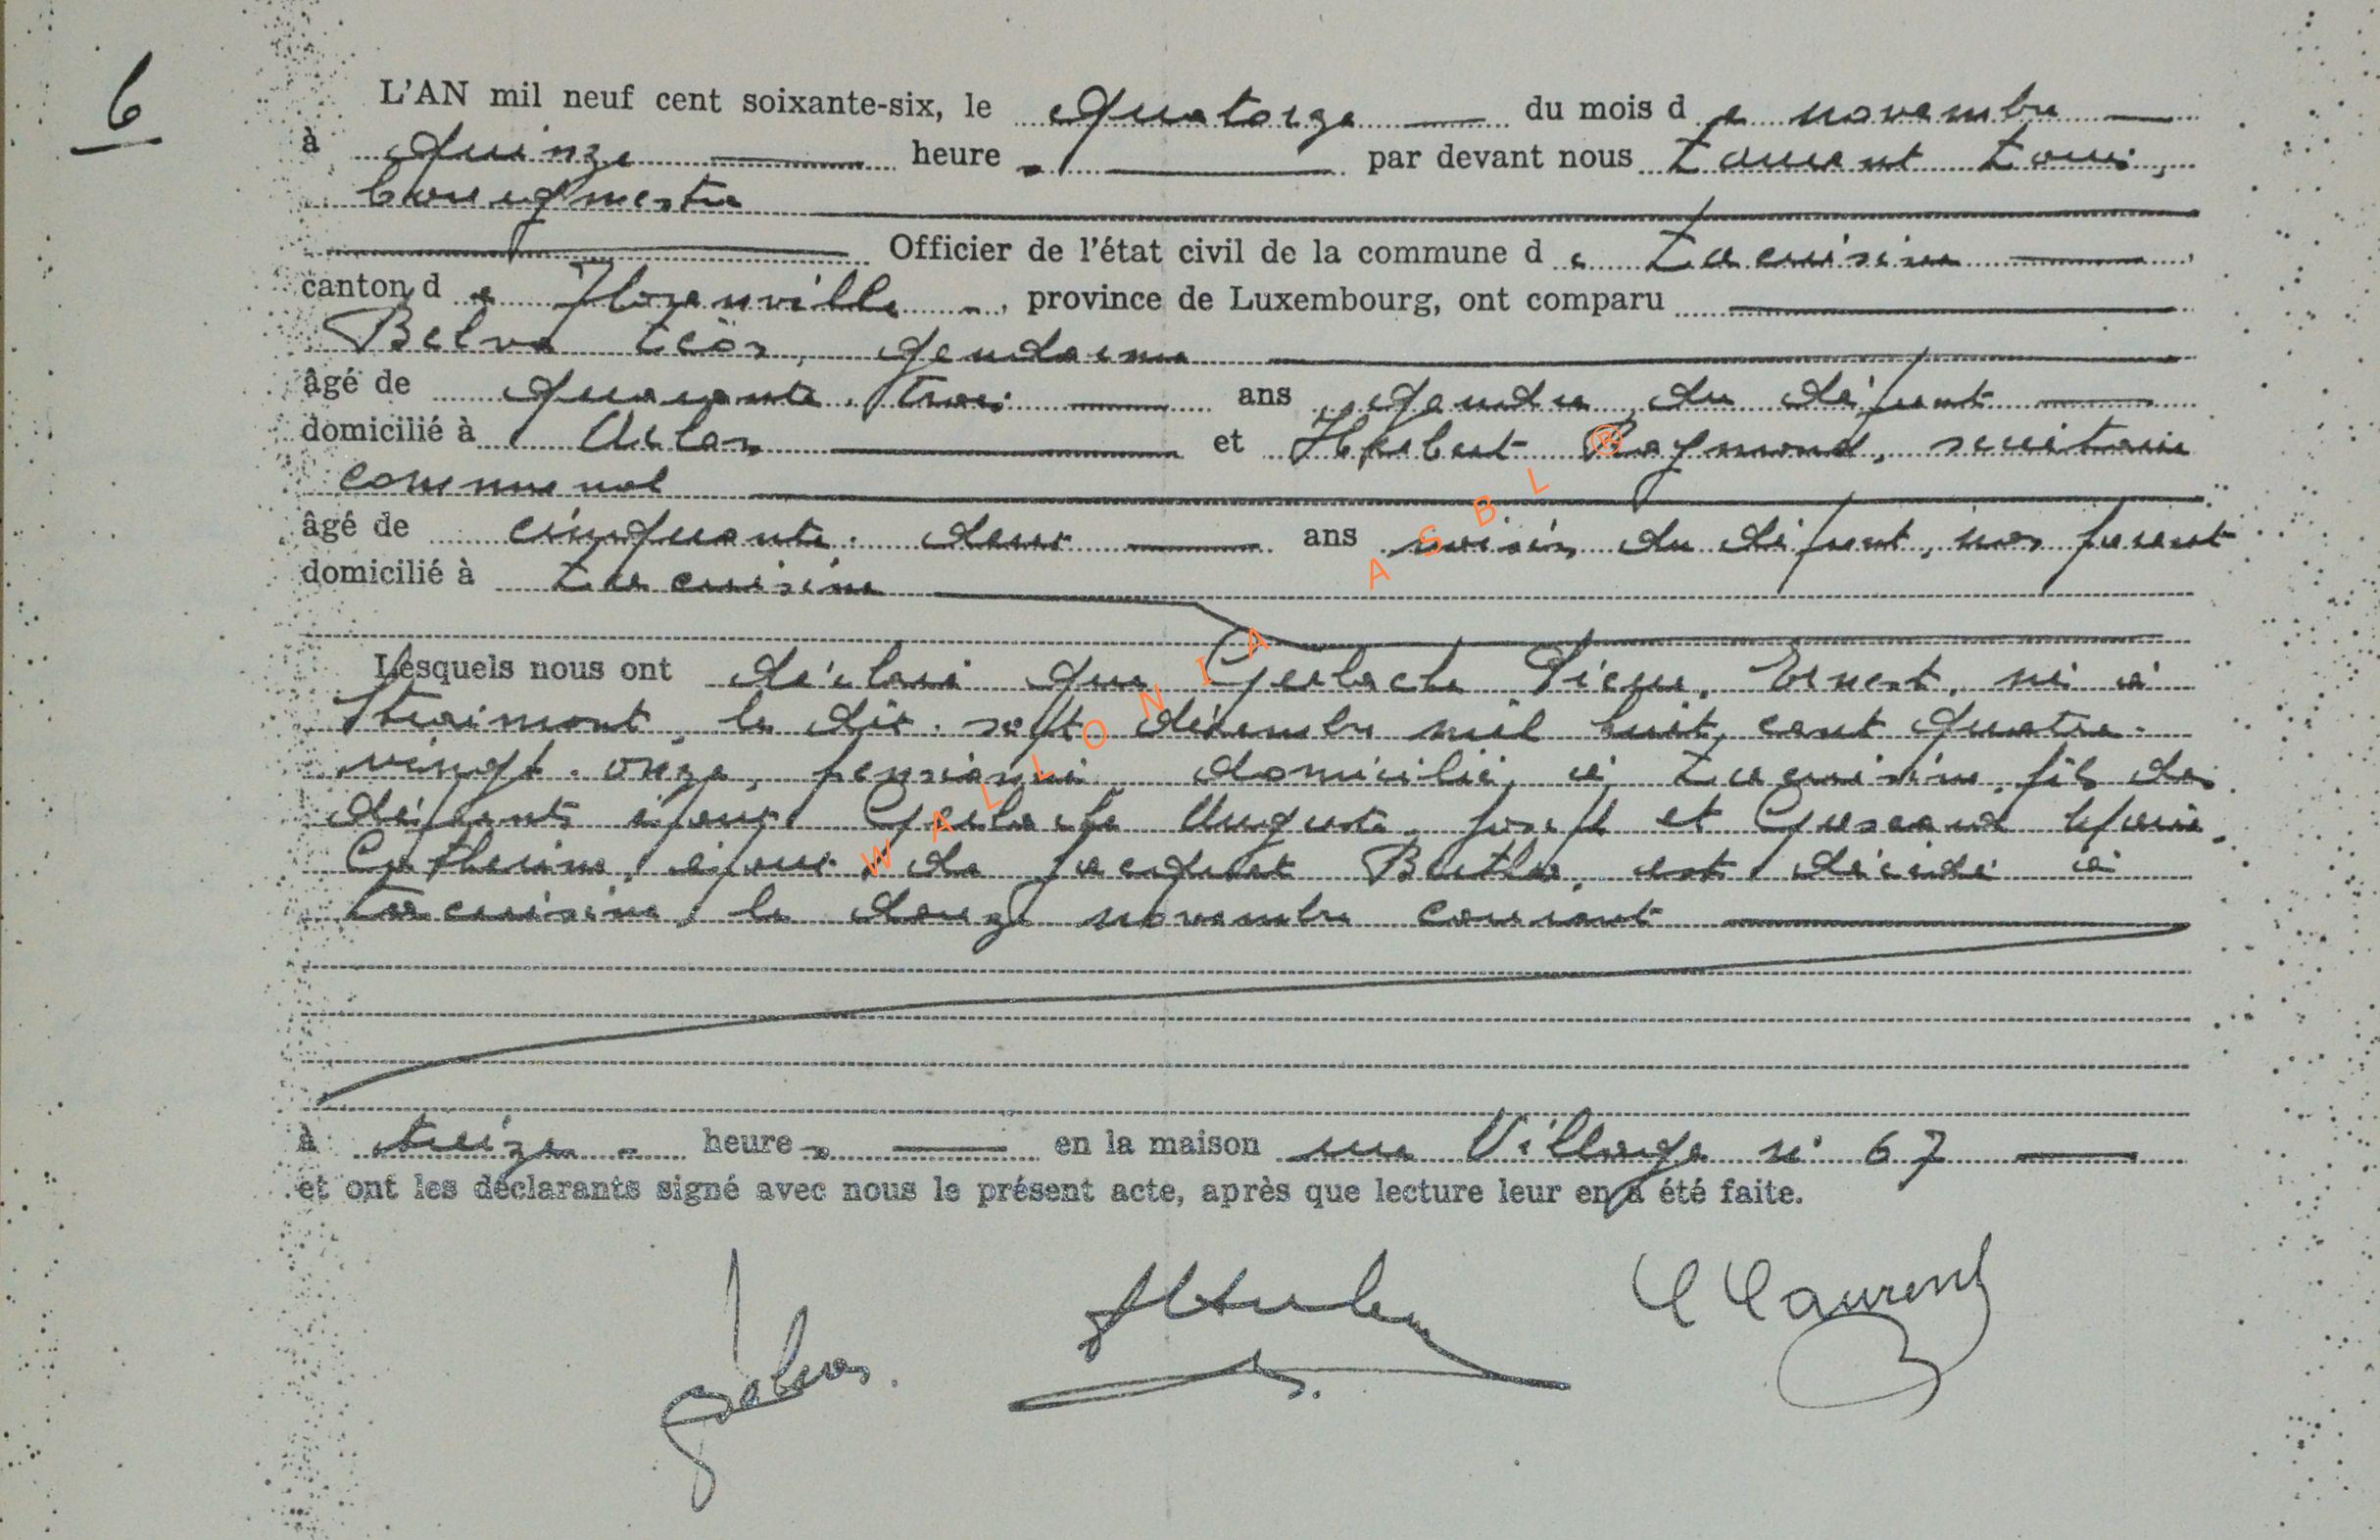 6
L'AN mil neuf cent soixante-six, le quatorze du mois d e novembre
à quinze heure s par devant nous Laurent Louis,
bourgmestre
Officier de l'état civil de la commune d e Lacuisine
canton d e Florenville, province de Luxembourg, ont comparu
Belva Léon, gendarme
âgé de quarante-trois ans, gendre du défunt
domicilié à Arlon et Hubert Raymond, secrétaire
communal
âgé de cinquante-deux ans voisin du défunt, non parent
domicilié à Lacuisine
Lesquels nous ont déclaré que Gerlache Ernest, né à
Straimont, le dix-sept décembre mil huit cent quatre-
vingt-onze, pensionné domicilié à Lacuisine, fils des
défunts époux Gerlache Auguste, Joseph et Marie,
Catherine, époux de Jacquet Berthe, est décédé à
Lacuisine, le douze novembre courant
à treize heure s en la maison rue Village n° 67
et ont les déclarants signé avec nous le présent acte, après que lecture leur en a été faite.
L Laurent
WALLONIA ASBL ®